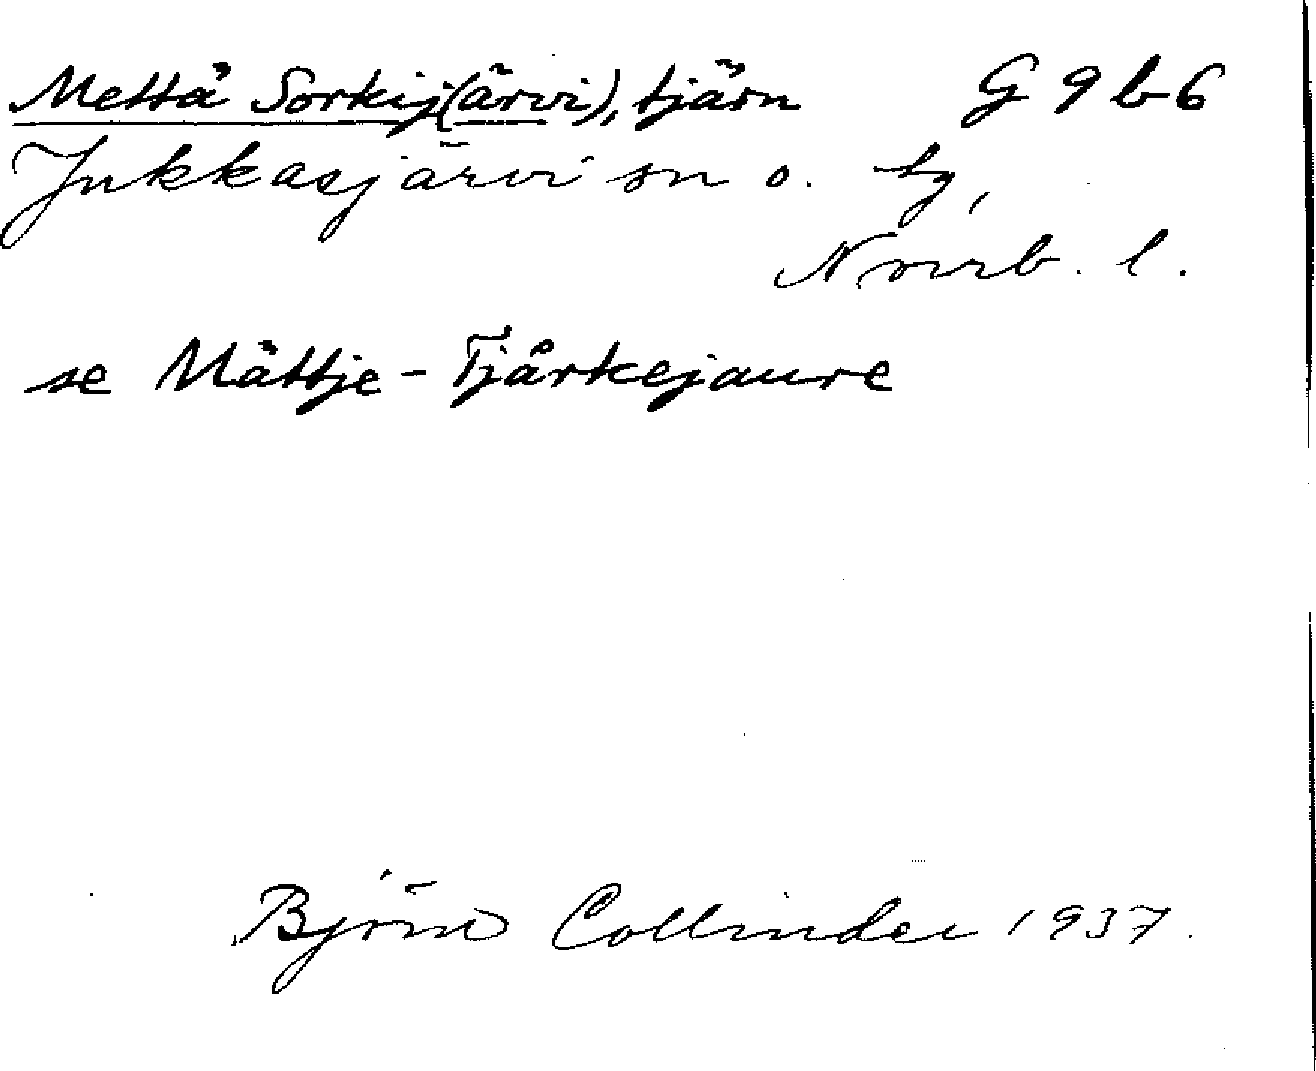 Mettä Sorkij(ärvi), tjärn G 9 b 6
Jukkasjärvi sn o. tg,
Norrb. l.
se Mättje-Tjårkejaure
Björn Collinder 1937.